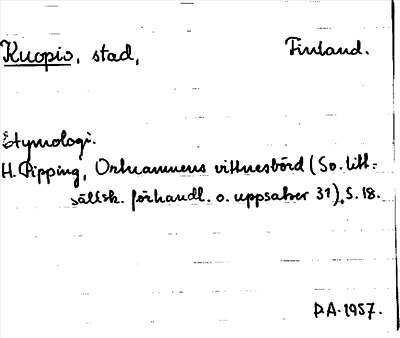 Kuopio, stad, Finland.
Etymologi.
H. Pipping, Ortnamnens vittnesbörd (Sv. litt=
sällsk. förhandl. o. uppsatser 31), S. 18.
D.A. 1957.